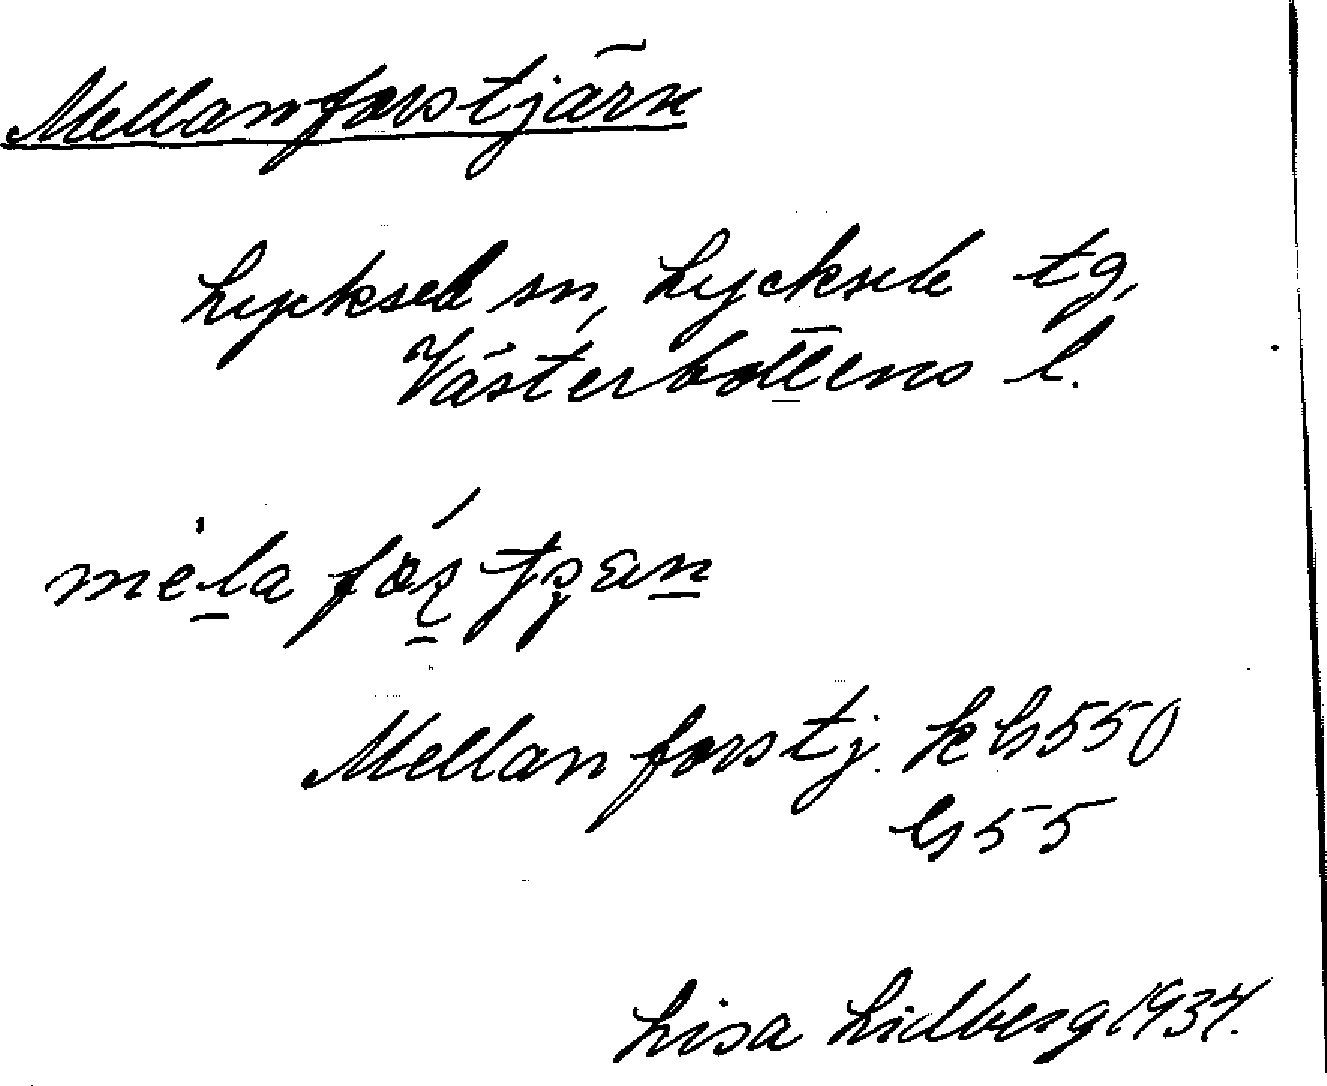 Mellanforstjärn
Lycksele sn, Lycksele tg,
Västerbottens l.
mela fɔʂ tjɛn
Mellanforstj. kbs 550
bs 55
Lisa Lidberg 1934.